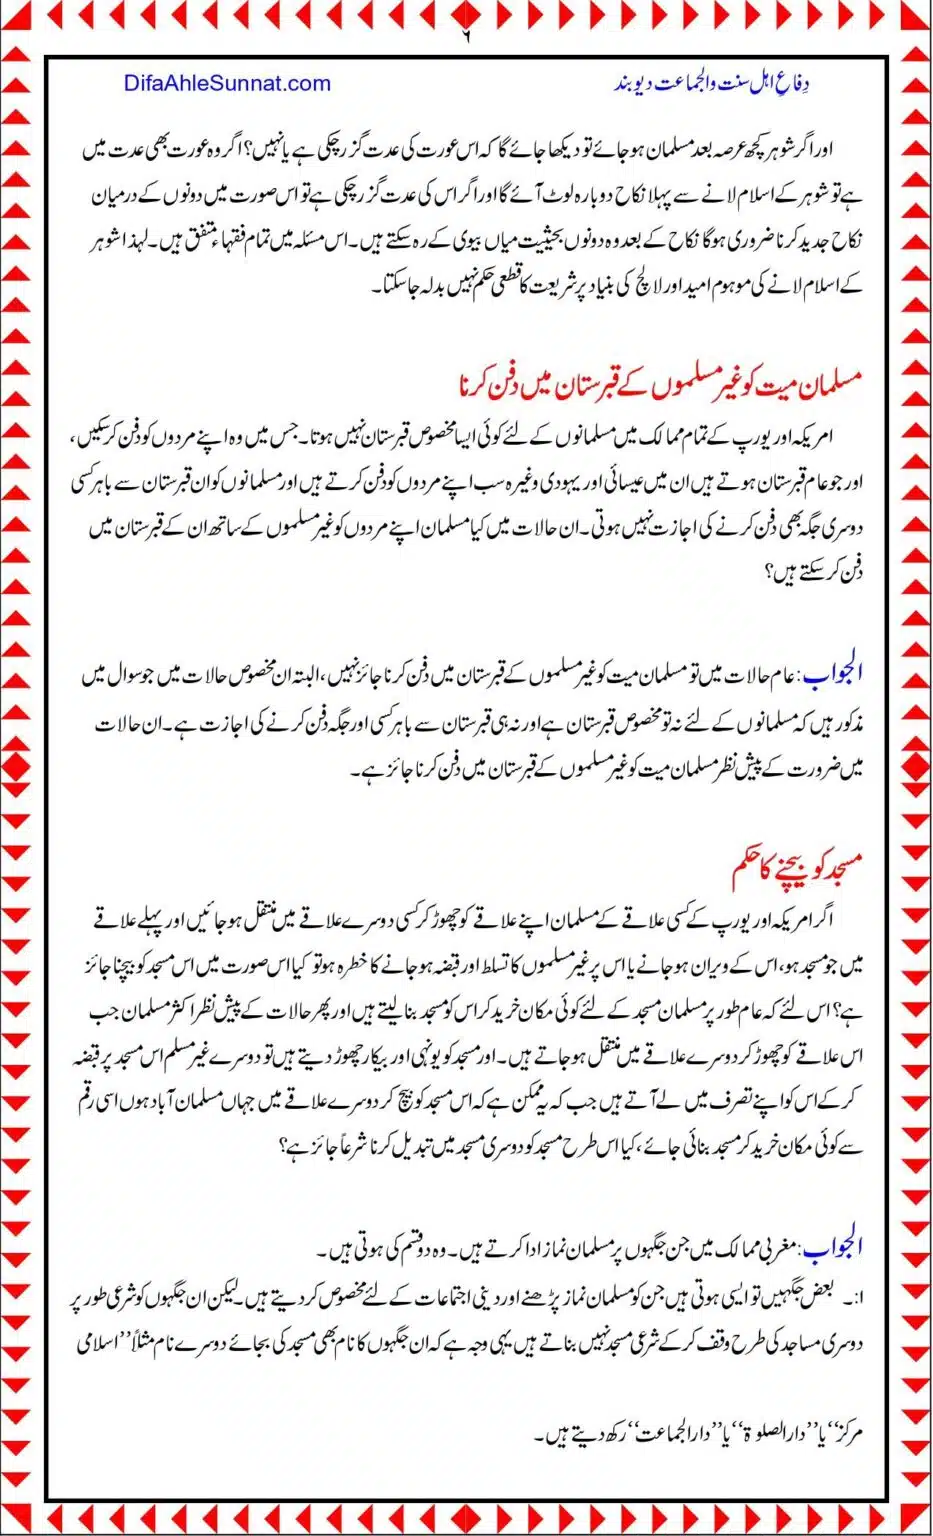 ۶
دِفاعِ اہل سنت والجماعت دیوبند DifaAhleSunnat.com
اور اگر شوہر کچھ عرصہ بعد مسلمان ہو جائے تو دیکھا جائے گا کہ اس عورت کی عدت گزر چکی ہے یا نہیں؟ اگر وہ عورت بھی عدت میں
ہے تو شوہر کے اسلام لانے سے پہلا نکاح دوبارہ لوٹ آئے گا اور اگر اس کی عدت گزر چکی ہے تو اس صورت میں دونوں کے درمیان
نکاح جدید کرنا ضروری ہو گا نکاح کے بعد وہ دونوں بحیثیت میاں بیوی کے رہ سکتے ہیں۔ اس مسئلہ میں تمام فقہاء متفق ہیں۔ لہذا شوہر
کے اسلام لانے کی موہوم امید اور لالچ کی بنیاد پر شریعت کا قطعی حکم نہیں بدلہ جا سکتا۔
مسلمان میت کو غیر مسلموں کے قبرستان میں دفن کرنا
امریکہ اور یورپ کے تمام ممالک میں مسلمانوں کے لئے کوئی ایسا مخصوص قبرستان نہیں ہوتا۔ جس میں وہ اپنے مردوں کو دفن کر سکیں،
اور جو عام قبرستان ہوتے ہیں ان میں عیسائی اور یہودی وغیرہ سب اپنے مردوں کو دفن کرتے ہیں اور مسلمانوں کو ان قبرستان سے باہر کسی
دوسری جگہ بھی دفن کرنے کی اجازت نہیں ہوتی۔ ان حالات میں کیا مسلمان اپنے مردوں کو غیر مسلموں کے ساتھ ان کے قبرستان میں
دفن کر سکتے ہیں؟
الجواب: عام حالات میں تو مسلمان میت کو غیر مسلموں کے قبرستان میں دفن کرنا جائز نہیں، البتہ ان مخصوص حالات میں جو سوال میں
مذکور ہیں کہ مسلمانوں کے لئے نہ تو مخصوص قبرستان ہے اور نہ ہی قبرستان سے باہر کسی اور جگہ دفن کرنے کی اجازت ہے۔ ان حالات
میں ضرورت کے پیش نظر مسلمان میت کو غیر مسلموں کے قبرستان میں دفن کرنا جائز ہے۔
مسجد کو بیچنے کا حکم
اگر امریکہ اور یورپ کے کسی علاقے کے مسلمان اپنے علاقے کو چھوڑ کر کسی دوسرے علاقے میں منتقل ہو جائیں اور پہلے علاقے
میں جو مسجد ہو، اس کے ویران ہو جانے یا اس پر غیر مسلموں کا تسلط اور قبضہ ہو جانے کا خطرہ ہو تو کیا اس صورت میں اس مسجد کو بیچنا جائز
ہے؟ اس لئے کہ عام طور پر مسلمان مسجد کے لئے کوئی مکان خرید کر اس کو مسجد بنا لیتے ہیں اور پھر حالات کے پیش نظر اکثر مسلمان جب
اس علاقے کو چھوڑ کر دوسرے علاقے میں منتقل ہو جاتے ہیں۔ اور مسجد کو یونہی اور بیکار چھوڑ دیتے ہیں تو دوسرے غیر مسلم اس مسجد پر قبضہ
کر کے اس کو اپنے تصرف میں لے آتے ہیں جب کہ یہ ممکن ہے کہ اس مسجد کو بیچ کر دوسرے علاقے میں جہاں مسلمان آباد ہوں اسی رقم
سے کوئی مکان خرید کر مسجد بنائی جائے، کیا اس طرح مسجد کو دوسری مسجد میں تبدیل کرنا شرعاً جائز ہے؟
الجواب: مغربی ممالک میں جن جگہوں پر مسلمان نماز ادا کرتے ہیں۔ وہ دو قسم کی ہوتی ہیں۔
۱:۔ بعض جگہیں تو ایسی ہوتی ہیں جن کو مسلمان نماز پڑھنے اور دینی اجتماعات کے لئے مخصوص کر دیتے ہیں۔ لیکن ان جگہوں کو شرعی طور پر
دوسری مساجد کی طرح وقف کر کے شرعی مسجد نہیں بناتے ہیں یہی وجہ ہے کہ ان جگہوں کا نام بھی مسجد کی بجائے دوسرے نام مثلاً ’’اسلامی
مرکز‘‘ یا ’’دار الصلوۃ‘‘ یا ’’دار الجماعت‘‘ رکھ دیتے ہیں۔